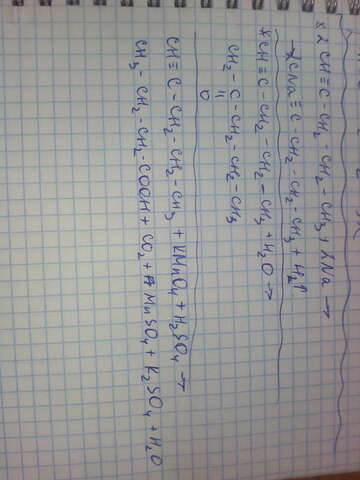 x 2 CH≡C-CH₂-CH₂-CH₃ + 2Na →
→ 2CNa≡C-CH₂-CH₂-CH₃ + H₂↑
* CH≡C-CH₂-CH₂-CH₃ + H₂O →
CH₂-C-CH₂-CH₂-CH₃
=
O
CH≡C-CH₂-CH₂-CH₃ + KMnO₄ + H₂SO₄ →
CH₃-CH₂-CH₂-COOH + CO₂ + MnSO₄ + K₂SO₄ + H₂O